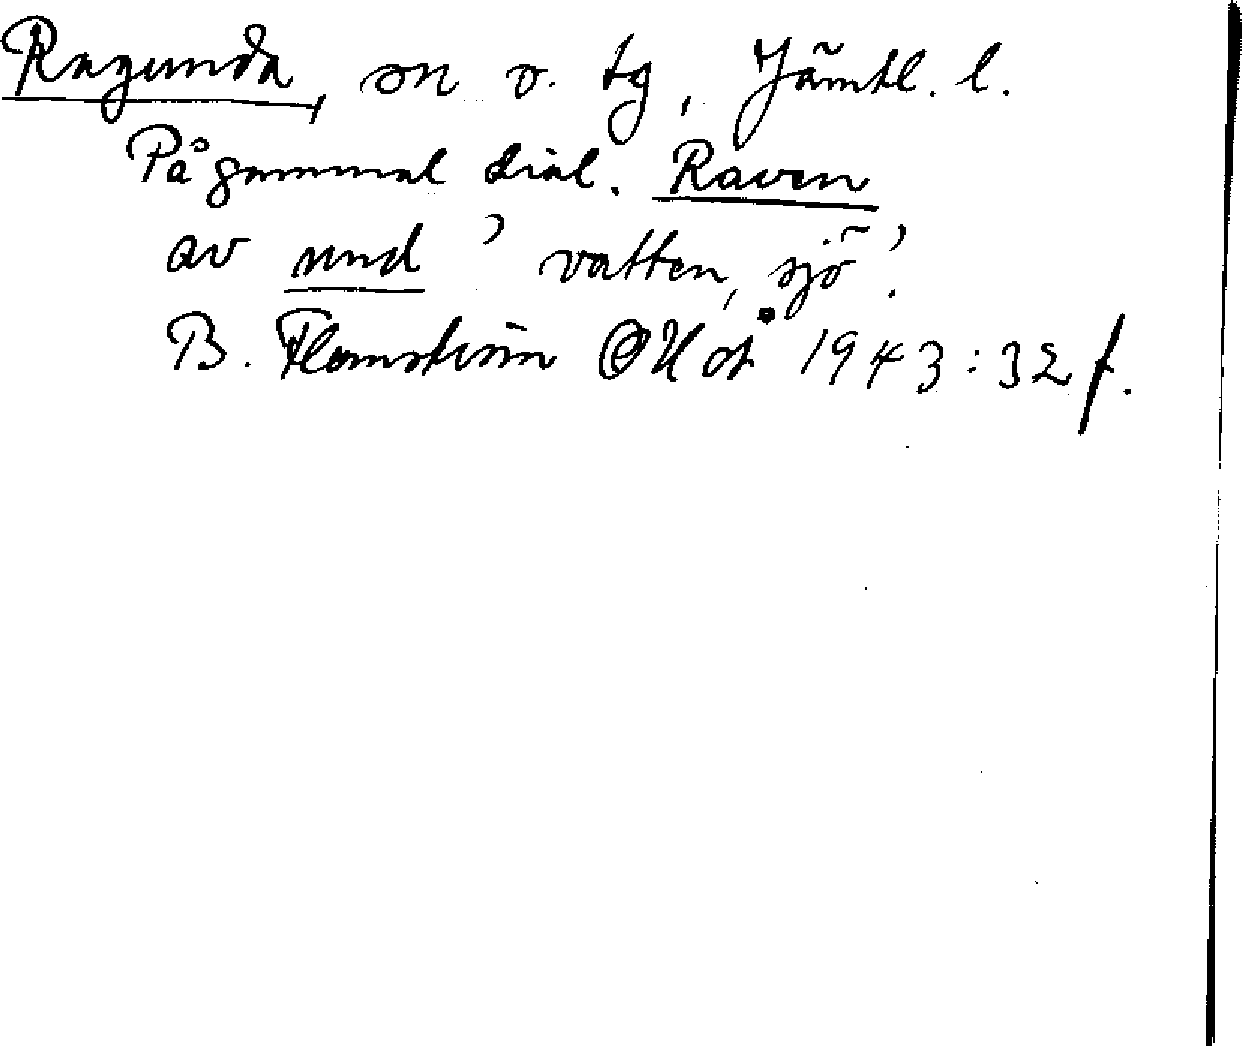 Ragunda, sn o. tg, Jämtl. l.
På gammal dial. Raven
av und 'vatten, sjö'.
B. Flemström OUoÅ 1943:32 f.